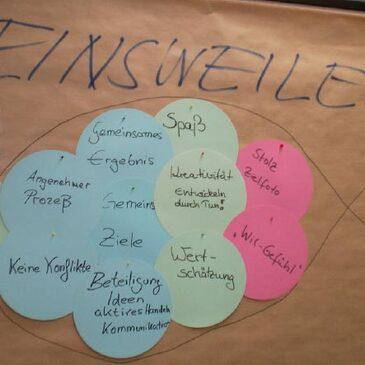 EINSWEILE
Gemeinsames
Ergebnis
Spaß
Angenehmer
Prozeß
Gemeins
Ziele
Kreativität
entwickeln
durch Tun!
Stolz
Zielfoto
Keine Konflikte
Beteiligung
Ideen
aktives Handeln
Kommunikation
Wert-
schätzung
"Wir-Gefühl"